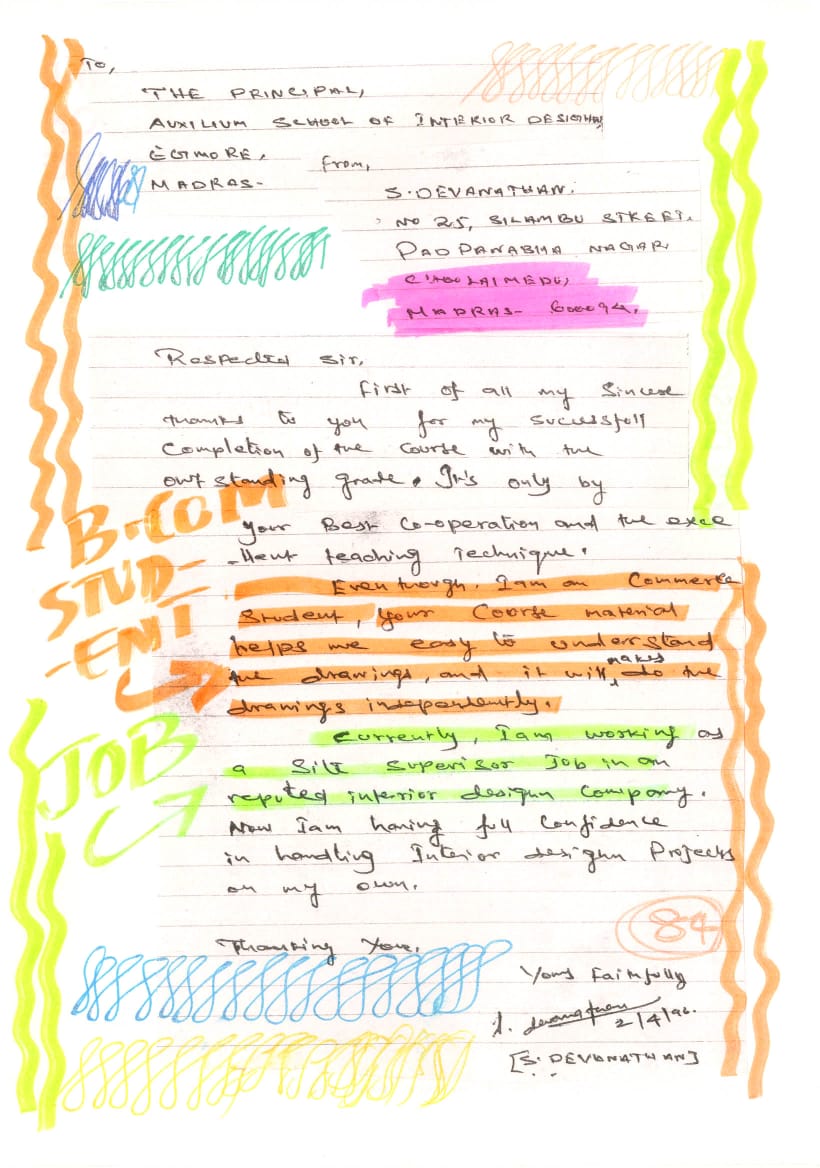 To,
THE PRINCIPAL,
AUXILIUM SCHOOL OF INTERIOR DESIGHN
EGMORE,
MADRAS-
from,
S. DEVANATHAN.
NO 25, SILAMBU STREET,
PADPANABHA NAGAR,
CHOOLAIMEDU,
MADRAS- 600094.
Respected sir,
First of all my Sincere
thanks to you for my successfull
Completion of the course with the
outstanding grade. It's only by
your Best Co-operation and the exce
-llent teaching Technique.
Even though, I am an Commerce
Student, your Course material
helps me easy to understand
the drawings, and it will makes do the
drawings independently.
Currently, I am working as
a Site Supervisor Job in an
reputed interior designn Company.
Now I am having full Confidence
in handling Interior designn Projects
on my own.
Thanking You,
Yours Faithfully
2/4/96.
[S. DEVANATHAN]
B.COM
STUD-
-ENT
JOB
84